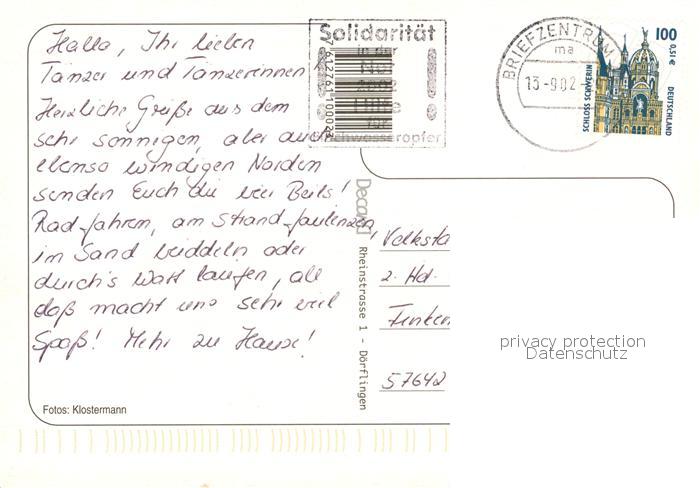 Hallo, Ihr lieben
Tänzer und Tänzerinnen
Herzliche Grüße aus dem
sehr sonnigen, aber auch
ebenso windigen Norden
senden Euch die vier Beils!
Radfahren, am Strand faulenzen,
im Sand buddeln oder
durch's Watt laufen, all
daß macht uns sehr viel
Spaß! Mehr zu Hause!
Fotos: Klostermann
Solidarität
in der
Not
2002
Hilfe
für
Hochwasseropfer
7 612761 100024
Rheinstrasse 1 - Dörflingen
BRIEFZENTRUM
ma
13-9 02
100
0,51€
SCHLOSS SCHWERIN
DEUTSCHLAND
Volksta
2. Hd.
Finken
57642
privacy protection
Datenschutz